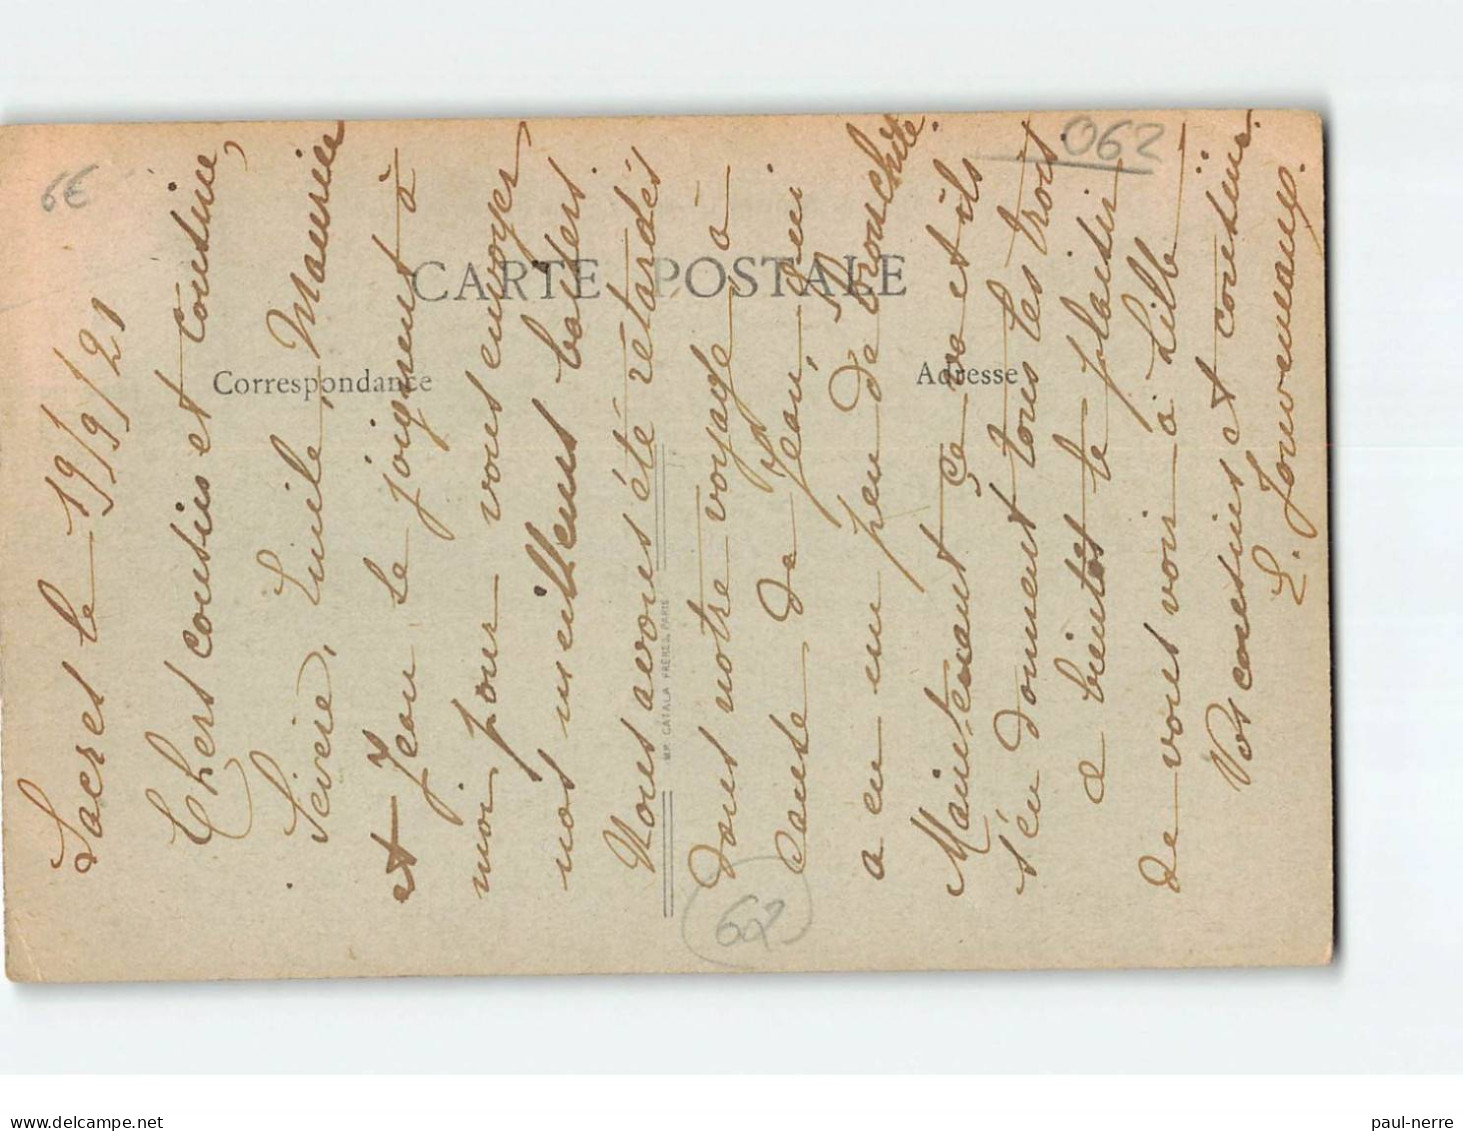 6€
062
CARTE POSTALE
Correspondance
Adresse
le 19/9/21
Chers cousins et cousine,
Maurice
et Jean se joignent à
moi pour vous envoyer
nos meilleurs baisers.
Nous avons été retardés
dans notre voyage à
cause de Jean qui
a eu un peu de bronchite.
Maintenant ça va et ils
s'en donnent tous les trois.
A bientôt le plaisir
de vous voir à
Vos cousins et cousine.
IMP. CATALA FRÈRES, PARIS
62
paul-nerre